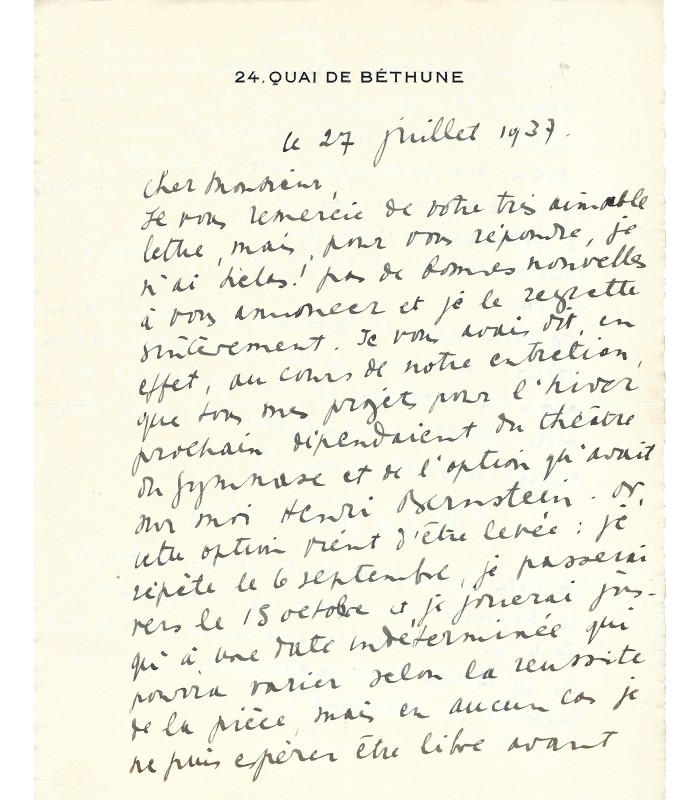 24, QUAI DE BÉTHUNE
le 27 juillet 1937.
Cher Monsieur,
Je vous remercie de votre très aimable
lettre, mais, pour vous répondre, je
n'ai hélas! pas de bonnes nouvelles
à vous annoncer et je le regrette
sincèrement. Je vous avais dit, en
effet, au cours de notre entretien,
que tous mes projets pour l'hiver
prochain dépendaient du théâtre
du Gymnase et de l'option qu'avait
sur moi Henri Bernstein. Or,
cette option vient d'être levée: je
répète le 6 septembre, je passerai
vers le 15 octobre et je jouerai jus-
qu'à une date indéterminée qui
pourra varier selon la réussite
de la pièce, mais en aucun cas je
ne puis espérer être libre avant